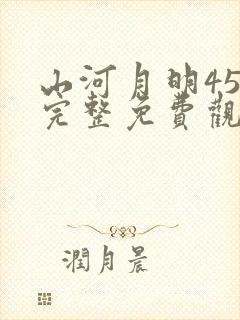 山河月明45
完整免費觀
潤月晨